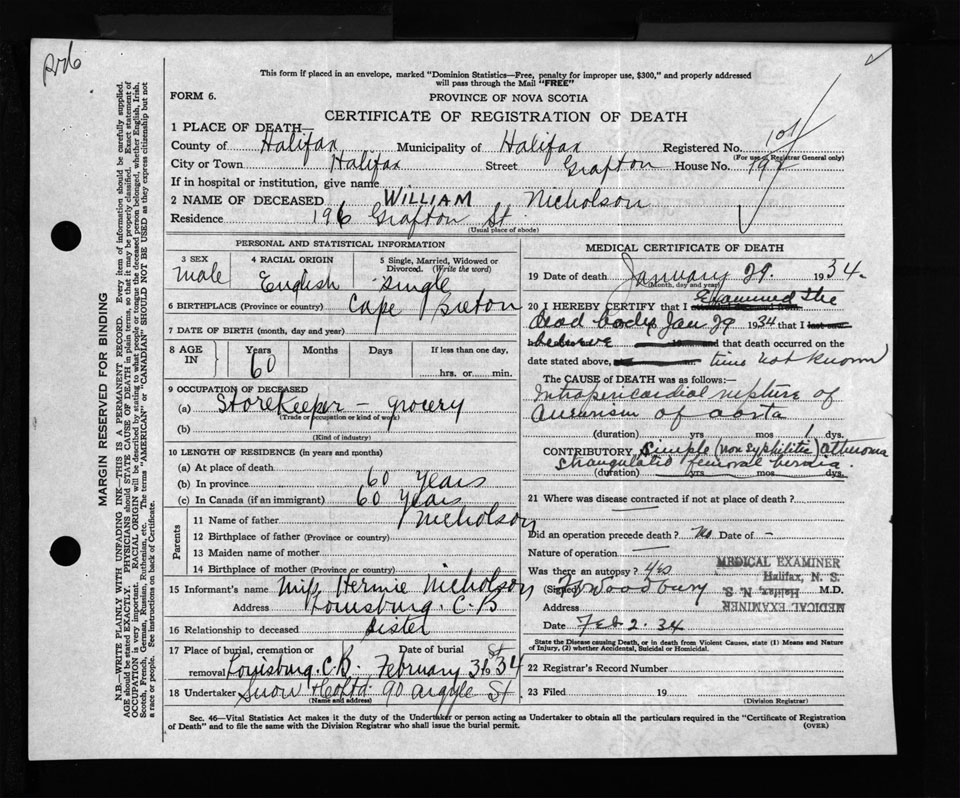 This form if placed in an envelope, marked "Dominion Statistics—Free, penalty for improper use, $300," and properly addressed
will pass through the Mail "FREE"
FORM 6.
PROVINCE OF NOVA SCOTIA
CERTIFICATE OF REGISTRATION OF DEATH
1 PLACE OF DEATH—
County of Halifax Municipality of Halifax Registered No. 101
(For use of Registrar General only)
City or Town Halifax Street Grafton House No. 192
If in hospital or institution, give name
2 NAME OF DECEASED WILLIAM Nicholson
Residence 196 Grafton St.
(Usual place of abode)
PERSONAL AND STATISTICAL INFORMATION
3 SEX male
4 RACIAL ORIGIN English
5 Single, Married, Widowed or Divorced. (Write the word) single
6 BIRTHPLACE (Province or country) Cape Breton
7 DATE OF BIRTH (month, day and year)
8 AGE IN Years 60 Months Days If less than one day, hrs. or min.
9 OCCUPATION OF DECEASED
(a) Storekeeper — grocery
(Trade or occupation or kind of work)
(b)
(Kind of industry)
10 LENGTH OF RESIDENCE (in years and months)
(a) At place of death
(b) In province 60 years
(c) In Canada (if an immigrant) 60 years
Parents
11 Name of father Nicholson
12 Birthplace of father (Province or country)
13 Maiden name of mother
14 Birthplace of mother (Province or country)
15 Informant's name Miss Hermie Nicholson
Address Louisburg. C.B
16 Relationship to deceased Sister
17 Place of burial, cremation or removal Louisburg. C.B. Date of burial February 3 1934
18 Undertaker Snow & Co Ltd. 90 Argyle St.
(Name and address)
MEDICAL CERTIFICATE OF DEATH
19 Date of death January 29. 1934.
(Month, day and year)
20 I HEREBY CERTIFY that I Examined the
dead body Jan 29 1934 that I
and that death occurred on the
date stated above, time not known
The CAUSE OF DEATH was as follows:—
Intrapericardial rupture of
Aneurism of aorta
(duration) yrs mos 1 dys.
CONTRIBUTORY Simple (non syphilitic) atheroma
strangulated femoral hernia
(duration) yrs mos dys.
21 Where was disease contracted if not at place of death?
Did an operation precede death? no Date of –
Nature of operation
Was there an autopsy? yes
(Signed) Woodbury M.D.
MEDICAL EXAMINER
Halifax, N. S.
Halifax, N. S.
MEDICAL EXAMINER
Address
Date Feb 2. 34
State the Disease causing Death, or in death from Violent Causes, state (1) Means and Nature
of Injury, (2) whether Accidental, Suicidal or Homicidal.
22 Registrar's Record Number
23 Filed 19
(Division Registrar)
Sec. 46—Vital Statistics Act makes it the duty of the Undertaker or person acting as Undertaker to obtain all the particulars required in the "Certificate of Registration
of Death" and to file the same with the Division Registrar who shall issue the burial permit.
MARGIN RESERVED FOR BINDING
N.B.—WRITE PLAINLY WITH UNFADING INK—THIS IS A PERMANENT RECORD. Every item of information should be carefully supplied.
AGE should be stated EXACTLY. PHYSICIANS should STATE CAUSE OF DEATH in plain terms, so that it may be properly classified. Exact statement of
OCCUPATION is very important. RACIAL ORIGIN will be described by stating to what people or tongue the deceased person belonged, whether English, Irish,
Scotch, French, German, Russian, Ruthenian, etc. The terms "AMERICAN" or "CANADIAN" SHOULD NOT BE USED as they express citizenship but not
a race or people. See instructions on back of Certificate.